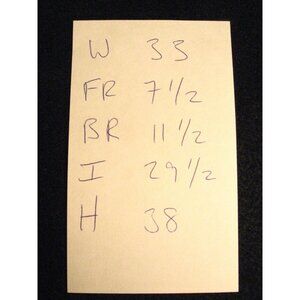 W 33
FR 7 1/2
BR 11 1/2
I 29 1/2
H 38